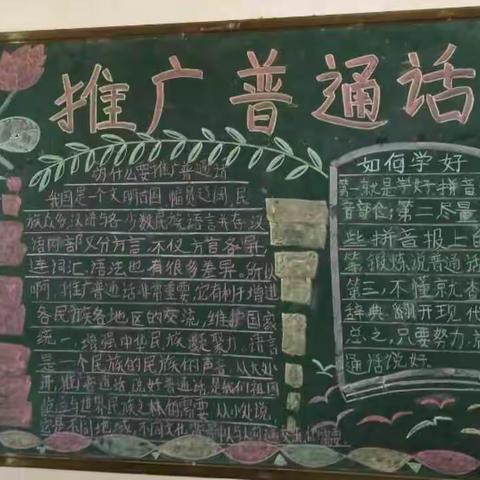 推广普通话
为什么要推广普通话
我国是一个文明古国,幅员辽阔,民
族众多,汉语与各少数民族语言并存,汉
语内部又分方言,不仅方音各异,
连词汇、语法也有很多差异。所以
啊,推广普通话非常重要,它有利于增进
各民族各地区的交流,维护国家
统一,增强中华民族凝聚力。语言
是一个民族的民族的声音,从大处
讲,推广普通话,说好普通话,是我们祖国
屹立与世界民族之林的需要,从小处说,
不同地域,不同文化
如何学好
第一就是学好拼音
第二尽量
些拼音报上的
锻炼说普通话
第三,不懂就查
辞典,翻开现代
总之,只要努力,就
通话说好。